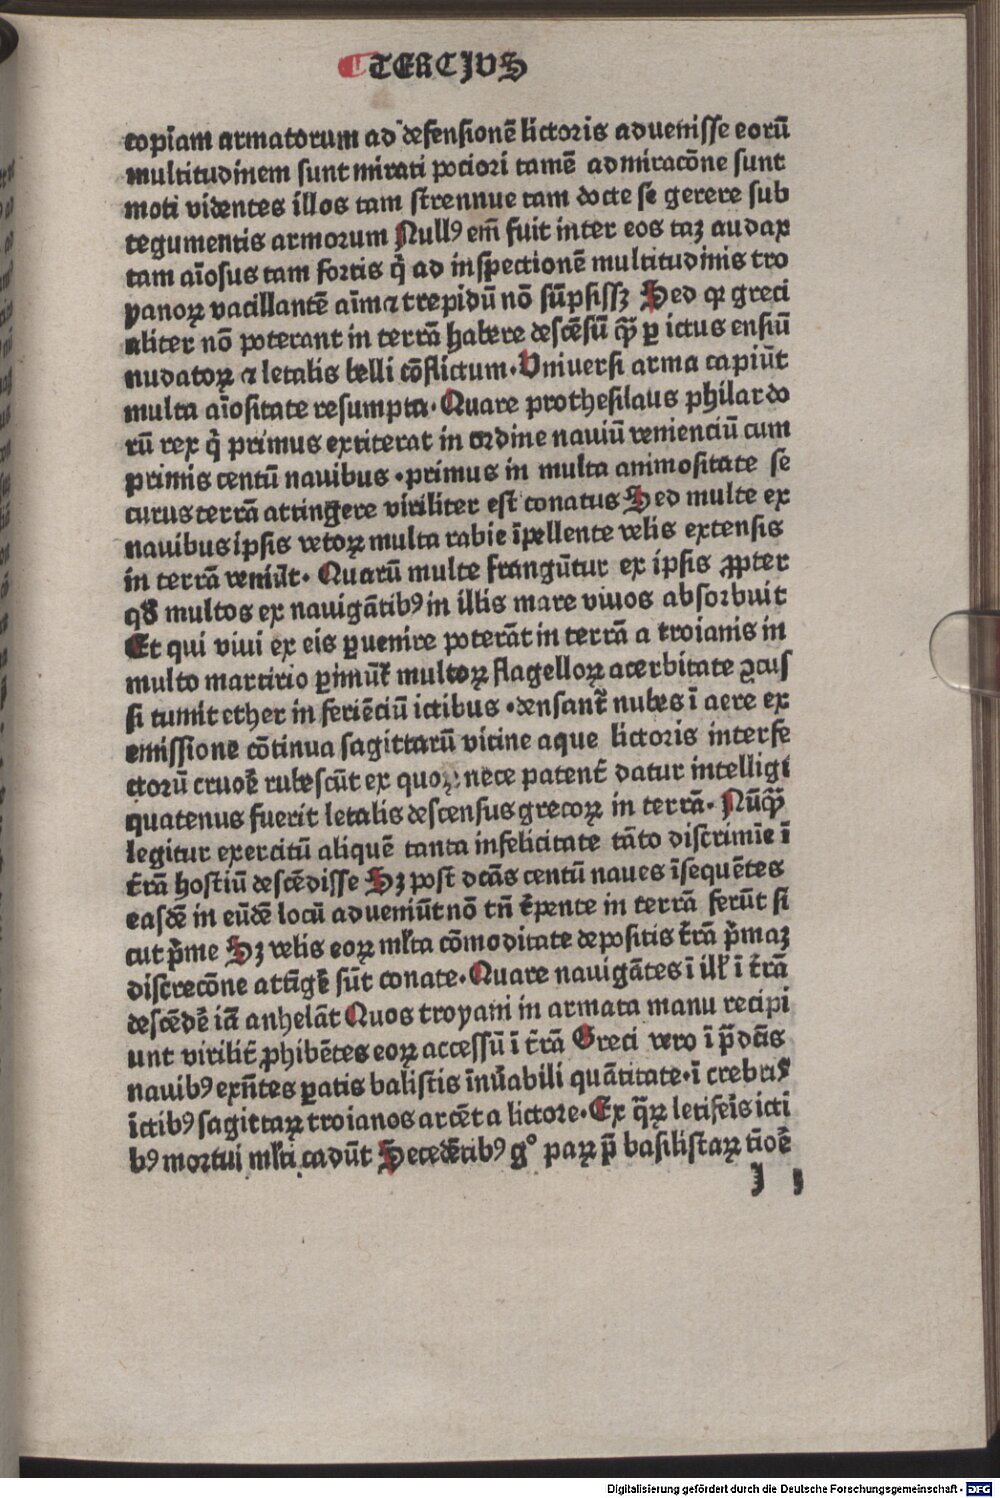 TERCIVS
copiam armatorum ad defensionē lictoris aduenisse eorū
multitudinem sunt mirati pociori tamē admiracōne sunt
moti videntes illos tam strennue tam docte se gerere sub
tegumentis armorum Nullꝰ em̄ fuit inter eos taꝫ audax
tam aīosus tam fortis q̇ ad inspectionē multitudinis tro
yanoꝝ vacillantē aīm ⁊ trepidū nō sūpsissꝫ Sed qꝛ greci
aliter nō poterant in terrā habere descēsū q̄ꝫ ꝑ ictus ensiū
nudatoꝝ ⁊ letalis belli cōflictum. Vniuersi arma capiūt
multa aīositate resumpta. Quare prothesilaus philardo
rū rex q̇ primus extiterat in ordine nauiū venienciū cum
primis centū nauibus . primus in multa animositate se
curus terrā attingere viriliter est conatus Sed multe ex
nauibus ipsis vetoꝝ multa rabie īpellente velis extensis
in terrā veniūt. Quarū multe frangūtur ex ipsis ꝓpter
qđ multos ex nauigātibꝰ in illis mare viuos absorbuit
Et qui viui ex eis ꝑuenire poterāt in terrā a troianis in
multo martirio ꝑimūt̄ multoꝝ flagelloꝝ acerbitate ꝯcus
si tumit ether in feriēciū ictibus . densant̄ nubes ī aere ex
emissione cōtinua sagittarū vicine aque lictoris interfe
ctorū cruoē rubescūt ex quoꝝ nece patent̄ datur intelligi
quatenus fuerit letalis descensus grecoꝝ in terrā. Nūq̄ꝫ
legitur exercitū aliquē tanta infelicitate tāto discrimīe ī
t̄rā hostiū descēdisse Sꝫ post dcās centū naues īsequētes
easdē in eūdē locū adueniūt nō tn̄ rēpente in terrā ferūt si
cut p̄me Sꝫ velis eoꝝ ml̄ta cōmoditate depositis t̄rā p̄maꝫ
discrecōne attīgē sūt conate. Quare nauigātes ī ill̄ ī t̄rā
descēdē iā anhelāt Quos troyani in armata manu recipi
unt virilit̄ ꝓhibētes eoꝝ accessū ī t̄rā Greci vero ī p̄dc̄is
nauibꝰ exn̄tes ꝑatis balistis īnūabili quātitate. ī crebris
īctibꝰ sagittaꝝ troianos arcēt a lictore. Ex q̄ꝝ letifeīs icti
bꝰ mortui ml̄ti cadūt Secedētibꝰ gº paꝝ p̄ basilistaꝝ tīoē
Digitalisierung gefördert durch die Deutsche Forschungsgemeinschaft - DFG